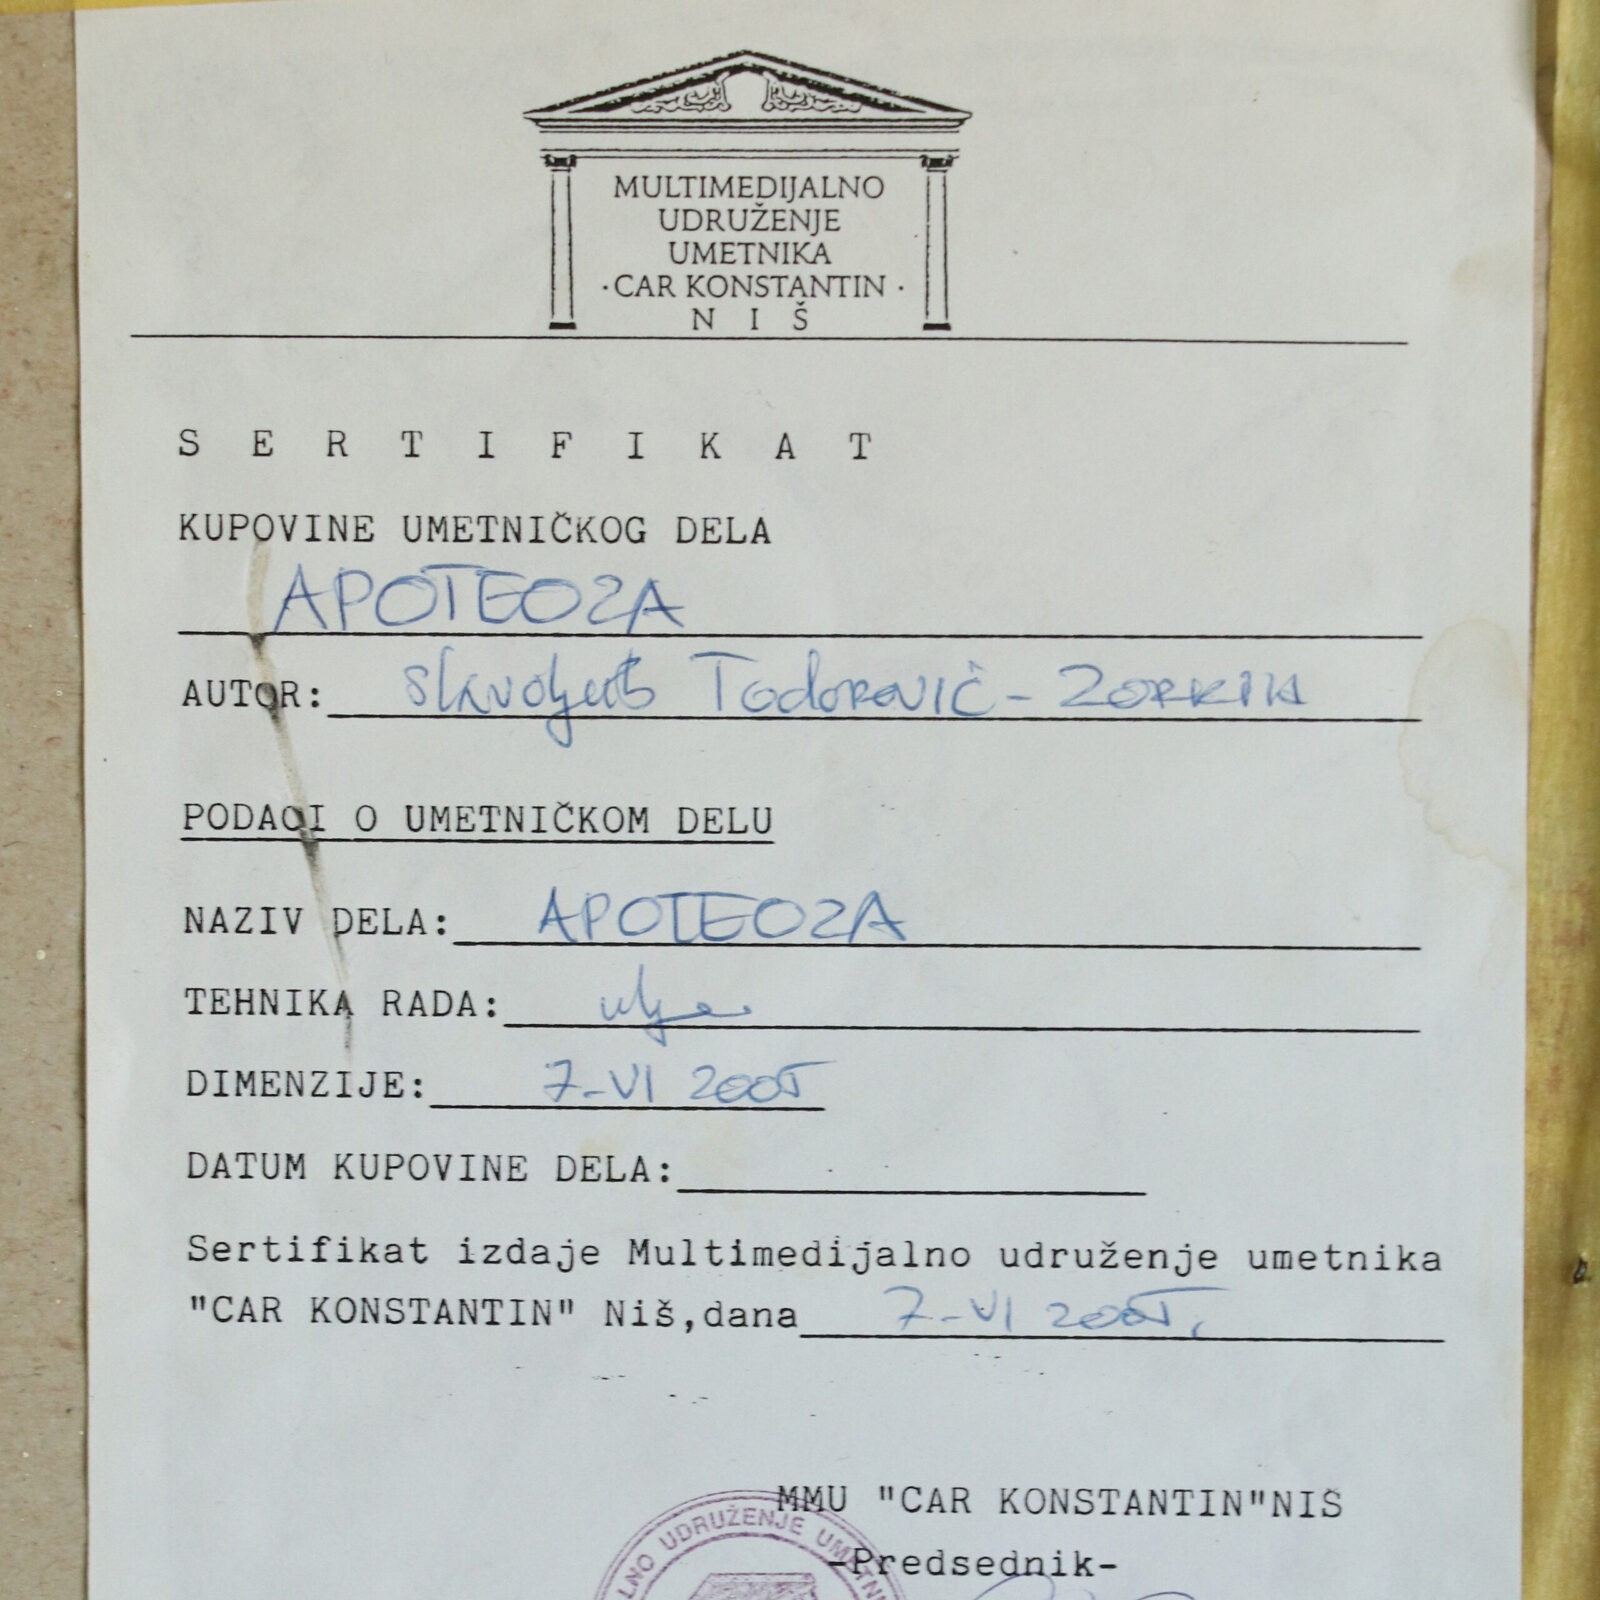 MULTIMEDIJALNO
UDRUŽENJE
UMETNIKA
·CAR KONSTANTIN·
NIŠ
SERTIFIKAT
KUPOVINE UMETNIČKOG DELA
APOTEOZA
AUTOR: Slavoljub Todorović - ZORKIN
PODACI O UMETNIČKOM DELU
NAZIV DELA: APOTEOZA
TEHNIKA RADA: ulje
DIMENZIJE: 7-VI 2005
DATUM KUPOVINE DELA:
Sertifikat izdaje Multimedijalno udruženje umetnika
"CAR KONSTANTIN" Niš,dana 7-VI 2005.
MMU "CAR KONSTANTIN"NIŠ
-Predsednik-
LNO UDRUŽENJE UMETNI